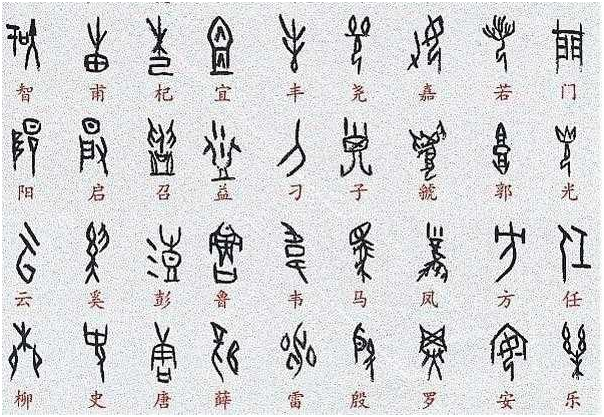 智 甫 杞 宜 丰 尧 嘉 若 门
阳 启 召 益 刁 子 虢 郭 光
云 奚 彭 鲁 韦 马 凤 方 任
柳 吏 唐 薛 雷 殷 罗 安 乐